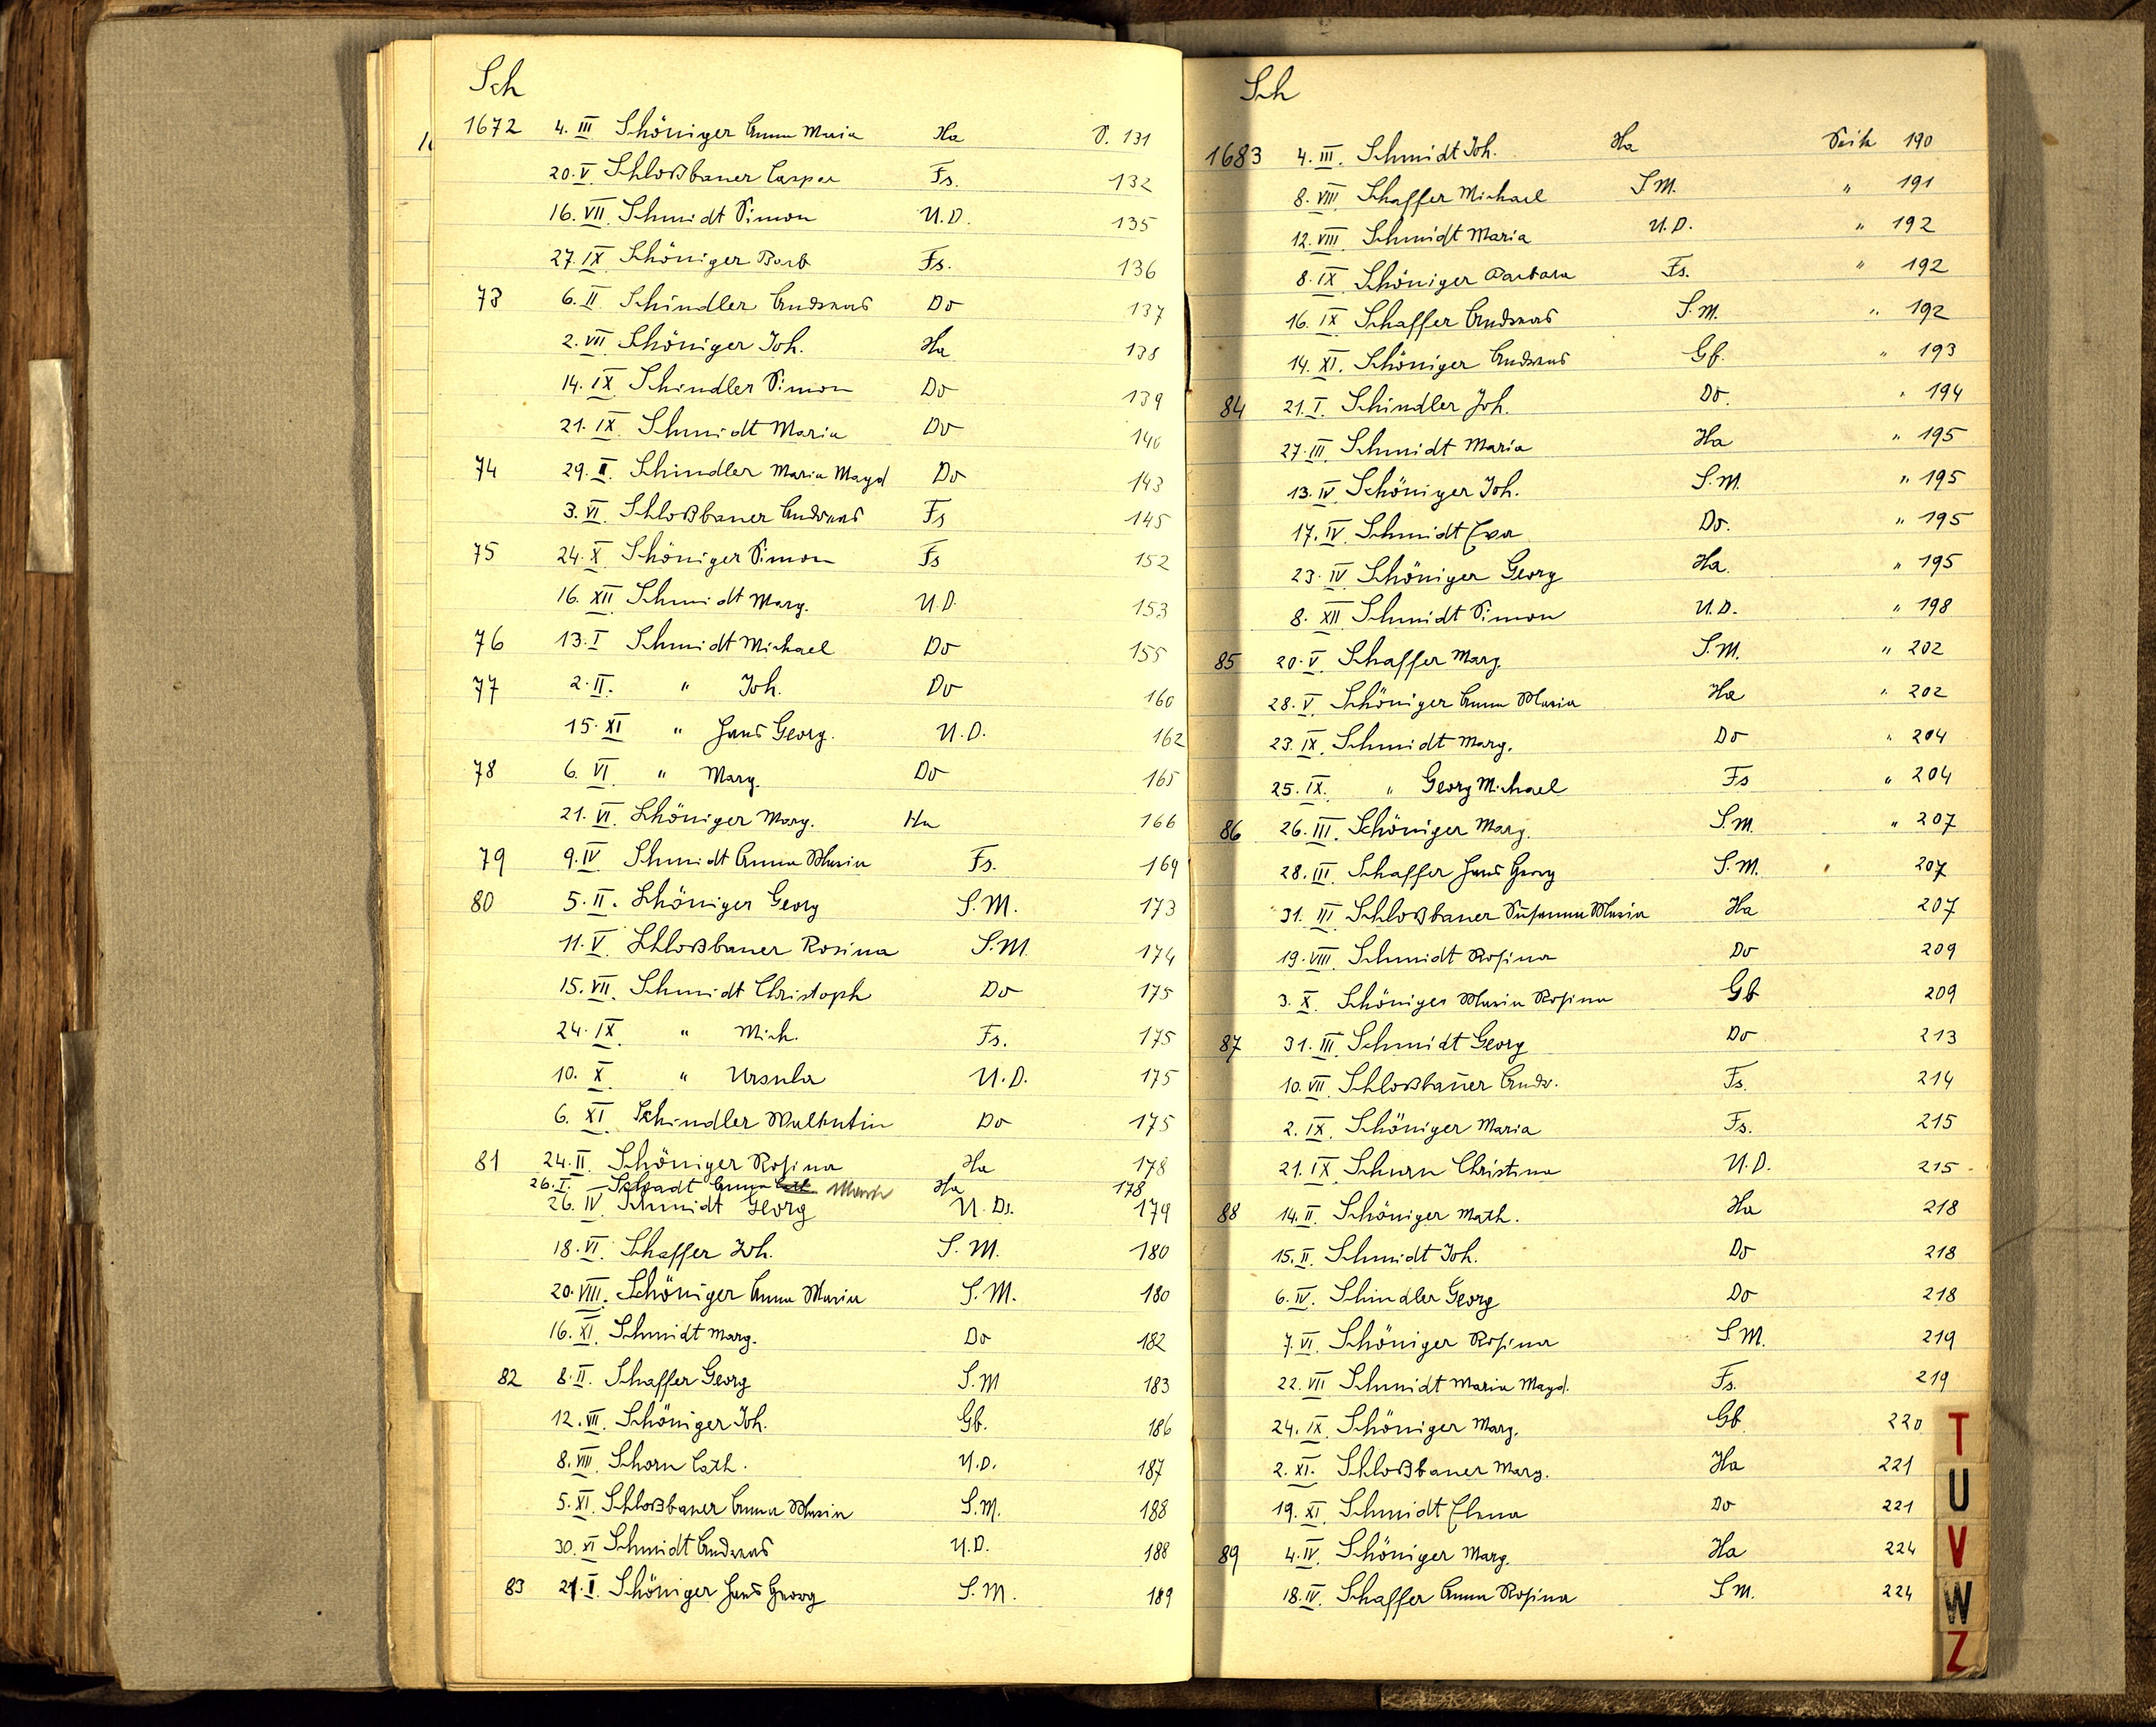 Sch
1672 4. III Schöniger Anna Maria Ha S. 131
20. V. Schloßbauer Caspar Fs. 132
16. VII. Schmidt Simon U.D. 135
27. IX Schöniger Barb Fs. 136
73 6. II Schindler Andreas Do 137
2. VII Schöniger Joh. Ha 138
14. IX Schindler Simon Do 139
21. IX. Schmidt Maria Do 140
74 29. II. Schindler Maria Magd Do 143
3. VI. Schloßbauer Andreas Fs 145
75 24. X Schöniger Simon Fs 152
16. XII Schmidt Marg. U.D. 153
76 13. I Schmidt Michael Do 155
77 2. II. " Joh. Do 160
15. XI " Hans Georg. U.D. 162
78 6. VI " Marg. Do 165
21. VI. Schöniger Marg. Ha 166
79 9. IV Schmidt Anna Maria Fs. 169
80 5. II. Schöniger Georg S.M. 173
11. V. Schloßbauer Rosina S.M. 174
15. VII. Schmidt Christoph Do 175
24. IX. " Mich. Fs. 175
10. X. " Ursula U.D. 175
6. XI. Schindler Wallentin Do 175
81 24. II. Schöniger Rosina Ha 178
26. I. Schadt Anna Maria Ha 178
26. IV. Schmidt Georg U.Ds. 179
18. VI. Schaffer Joh. S.M. 180
20. VIII. Schöniger Anna Maria S.M. 180
16. XI. Schmidt Marg. Do 182
82 8. II. Schaffer Georg S.M 183
12. VII. Schöniger Joh. Gb. 186
8. VIII. Schorn Cath. U.D. 187
5. XI. Schloßbauer Anna Maria S.M. 188
30. XI Schmidt Andreas U.D. 188
83 21. I. Schöniger Hans Georg S.M. 189
Sch
1683 4. III. Schmidt Joh. Ha Seite 190
8. VIII Schaffer Michael S.M. " 191
12. VIII. Schmidt Maria U.D. " 192
8. IX Schöniger Barbara Fs. " 192
16. IX Schaffer Andreas S.M. " 192
14. XI. Schöniger Andreas Gb. " 193
84 21. I. Schindler Joh. Do. " 194
27. III. Schmidt Maria Ha " 195
13. IV Schöniger Joh. S.M. " 195
17. IV. Schmidt Eva Do. " 195
23. IV Schöniger Georg Ha. " 195
8. XII Schmidt Simon U.D. " 198
85 20. V. Schaffer Marg. S.M. " 202
28. V. Schöniger Anna Maria Ha " 202
23. IX. Schmidt Marg. Do " 204
25. IX. " Georg Michael Fs " 204
86 26. III. Schöniger Marg. S.M. " 207
28. III Schaffer Hans Georg S.M. 207
31. III Schloßbauer Susanna Maria Ha 207
19. VIII. Schmidt Rosina Do 209
3. X. Schöniger Maria Rosina Gb 209
87 31. III. Schmidt Georg Do 213
10. VII. Schloßbauer Andr. Fs. 214
2. IX. Schöniger Maria Fs. 215
21. IX Schurn Christina U.D. 215
88 14. II. Schöniger Math. Ha 218
15. II. Schmidt Joh. Do 218
6. IV. Schindler Georg Do 218
7. VI. Schöniger Rosina S.M. 219
22. VII Schmidt Maria Magd. Fs. 219
24. IX. Schöniger Marg. Gb 220
2. XI. Schloßbauer Marg. Ha 221
19. XI. Schmidt Elena Do 221
89 4. IV. Schöniger Marg. Ha 224
18. IV. Schaffer Anna Rosina S.M. 224
T
U
V
W
Z